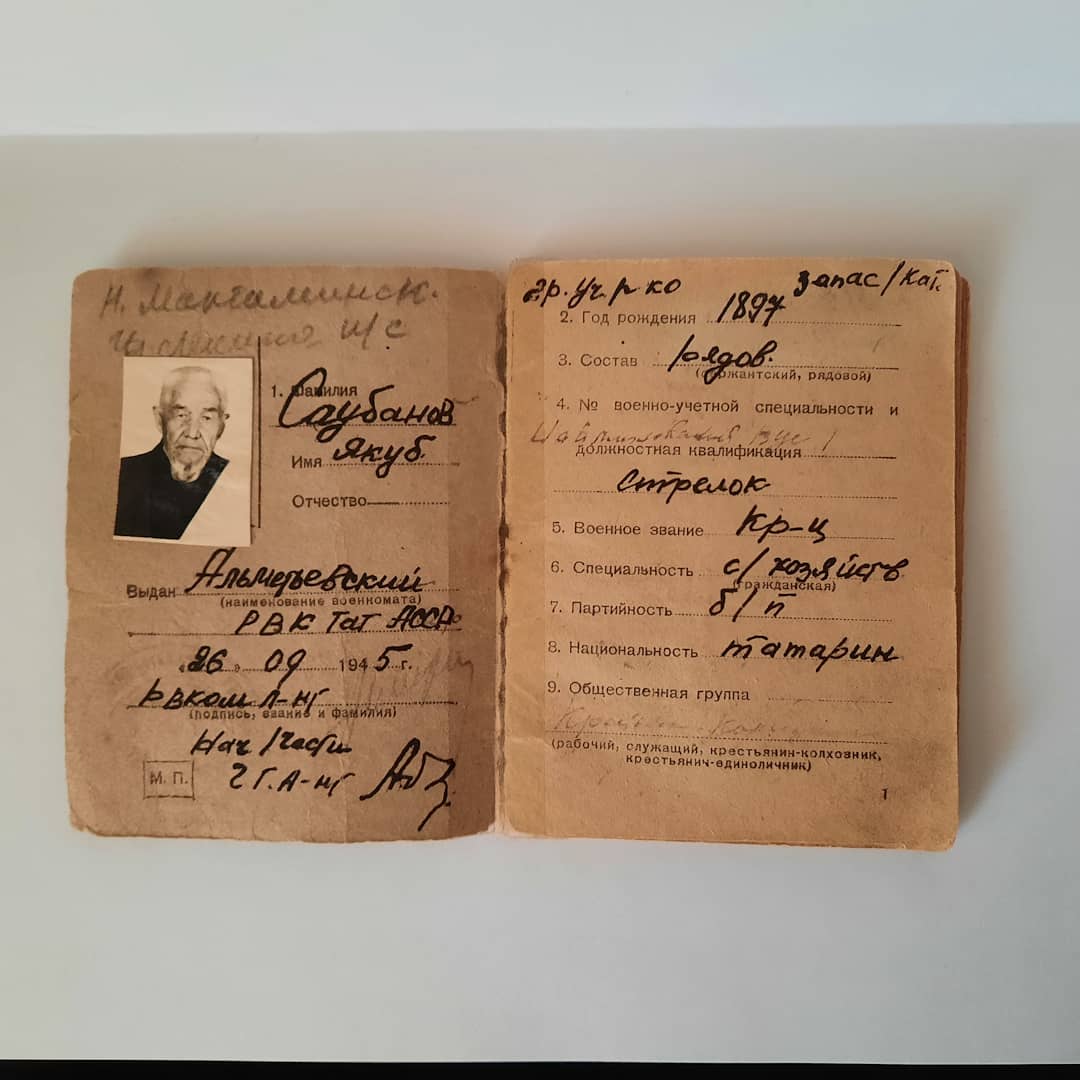 Н. Мактаминск.
и/с
1. Фамилия
Саубанов
Имя Якуб
Отчество
Выдан Альметьевский
(наименование военкомата)
РВК Тат АССР
"26" 09 1945 г.
РВКом л-нт
(подпись, звание и фамилия)
Нач 1 части
А-нт
М. П.
гр. уч. РККО запас/кат.
2. Год рождения 1897
3. Состав рядов.
(сержантский, рядовой)
4. № военно-учетной специальности и
должностная квалификация
стрелок
5. Военное звание кр-ц
6. Специальность с/хозяйств
(гражданская)
7. Партийность б/п
8. Национальность татарин
9. Общественная группа
(рабочий, служащий, крестьянин-колхозник,
крестьянин-единоличник)
1